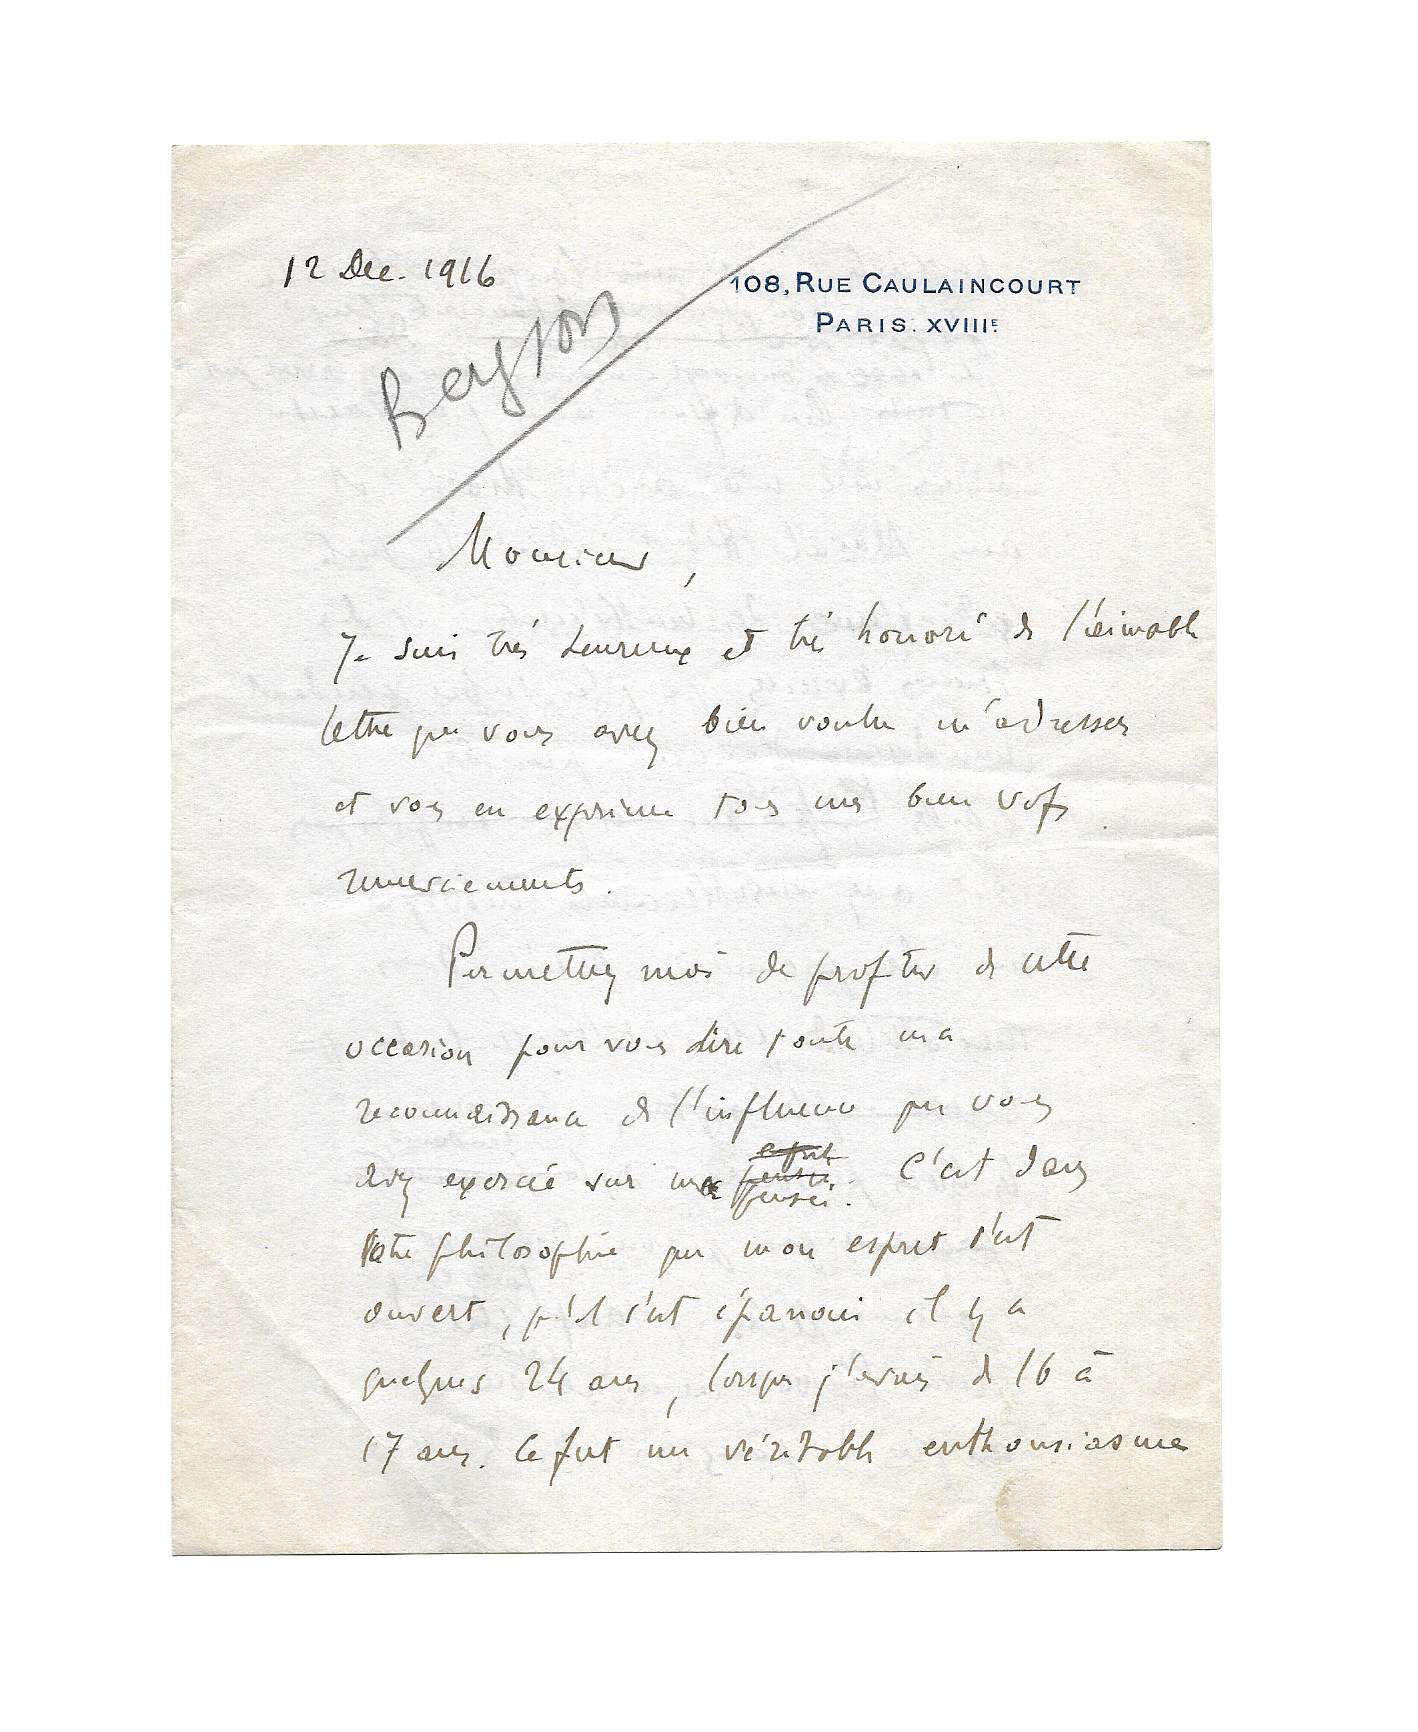 12 Dec. 1916
108, RUE CAULAINCOURT
PARIS. XVIIIE
Bergson
Monsieur,
Je suis très heureux et très honoré de l'aimable
lettre que vous avez bien voulu m'adresser
et vous en exprime tous mes bien vifs
remerciements.
Permettez moi de profiter de cette
occasion pour vous dire toute ma
reconnaissance de l'influence que vous
avez exercée sur ma esprit pensée
pensée. C'est dans
Votre philosophie que mon esprit s'est
ouvert, qu'il s'est épanoui il y a
quelques 24 ans, lorsque j'avais de 16 à
17 ans. Ce fut un véritable enthousiasme